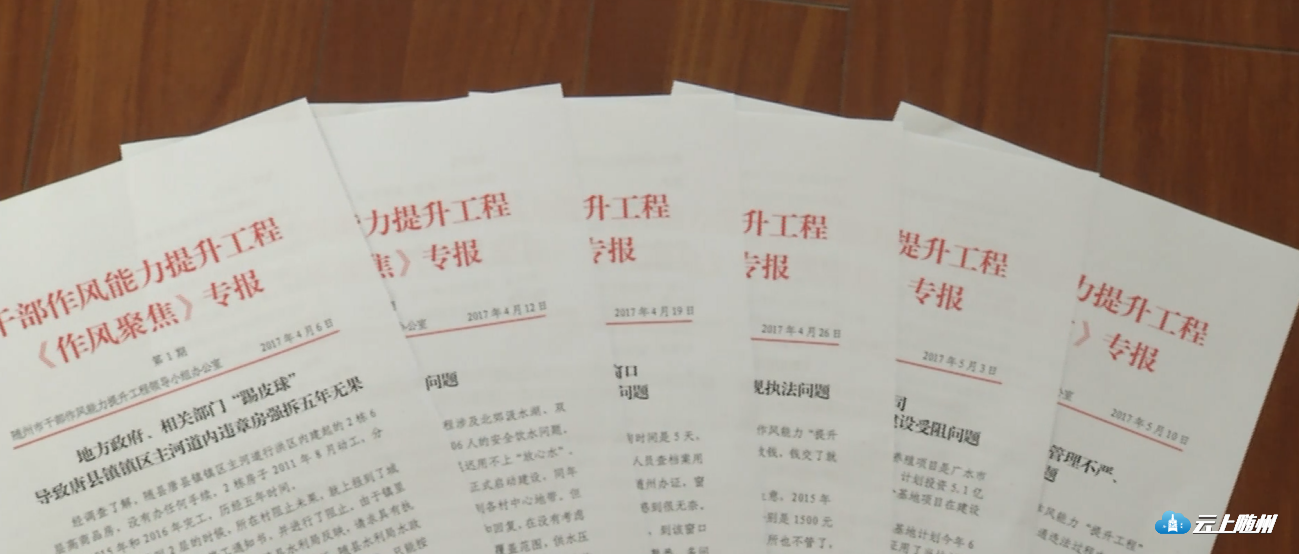 干部作风能力提升工程
《作风聚焦》专报
第1期
随州市干部作风能力提升工程领导小组办公室 2017年4月6日
地方政府、相关部门“踢皮球”
导致唐县镇镇区主河道内违章房强拆五年无果
经调查了解，随县唐县镇镇区主河道行洪区内建起的2栋6
层高商品房，没有办任何手续，2栋房子2011年8月动工，分
15年和2016年完工，历经五年时间。
力提升工程
焦》专报
办公室 2017年4月12日
问题
程涉及北郊㵐水湖、双
86人的安全饮水问题，
还用不上“放心水”，
正式启动建设，同年
到各村中心地带，但
和回复，在没有考虑
覆盖范围，供水压
升工程
专报
2017年4月19日
窗口
问题
时间是5天，
人员查档案用
随州办证，窗
感到很无奈。
，到该窗口
升工程
专报
2017年4月26日
规执法问题
作风能力“提升
收钱，钱交了就
意，2015年
别是1500元
所也不管了，
提升工程
专报
2017年5月3日
司
建设受阻问题
养殖项目是广水市
计划投资5.1亿
基地项目在建设
基地计划今年6
力提升工程
》专报
公室 2017年5月10日
管理不严、
题
作风能力“提升工程”
云上随州